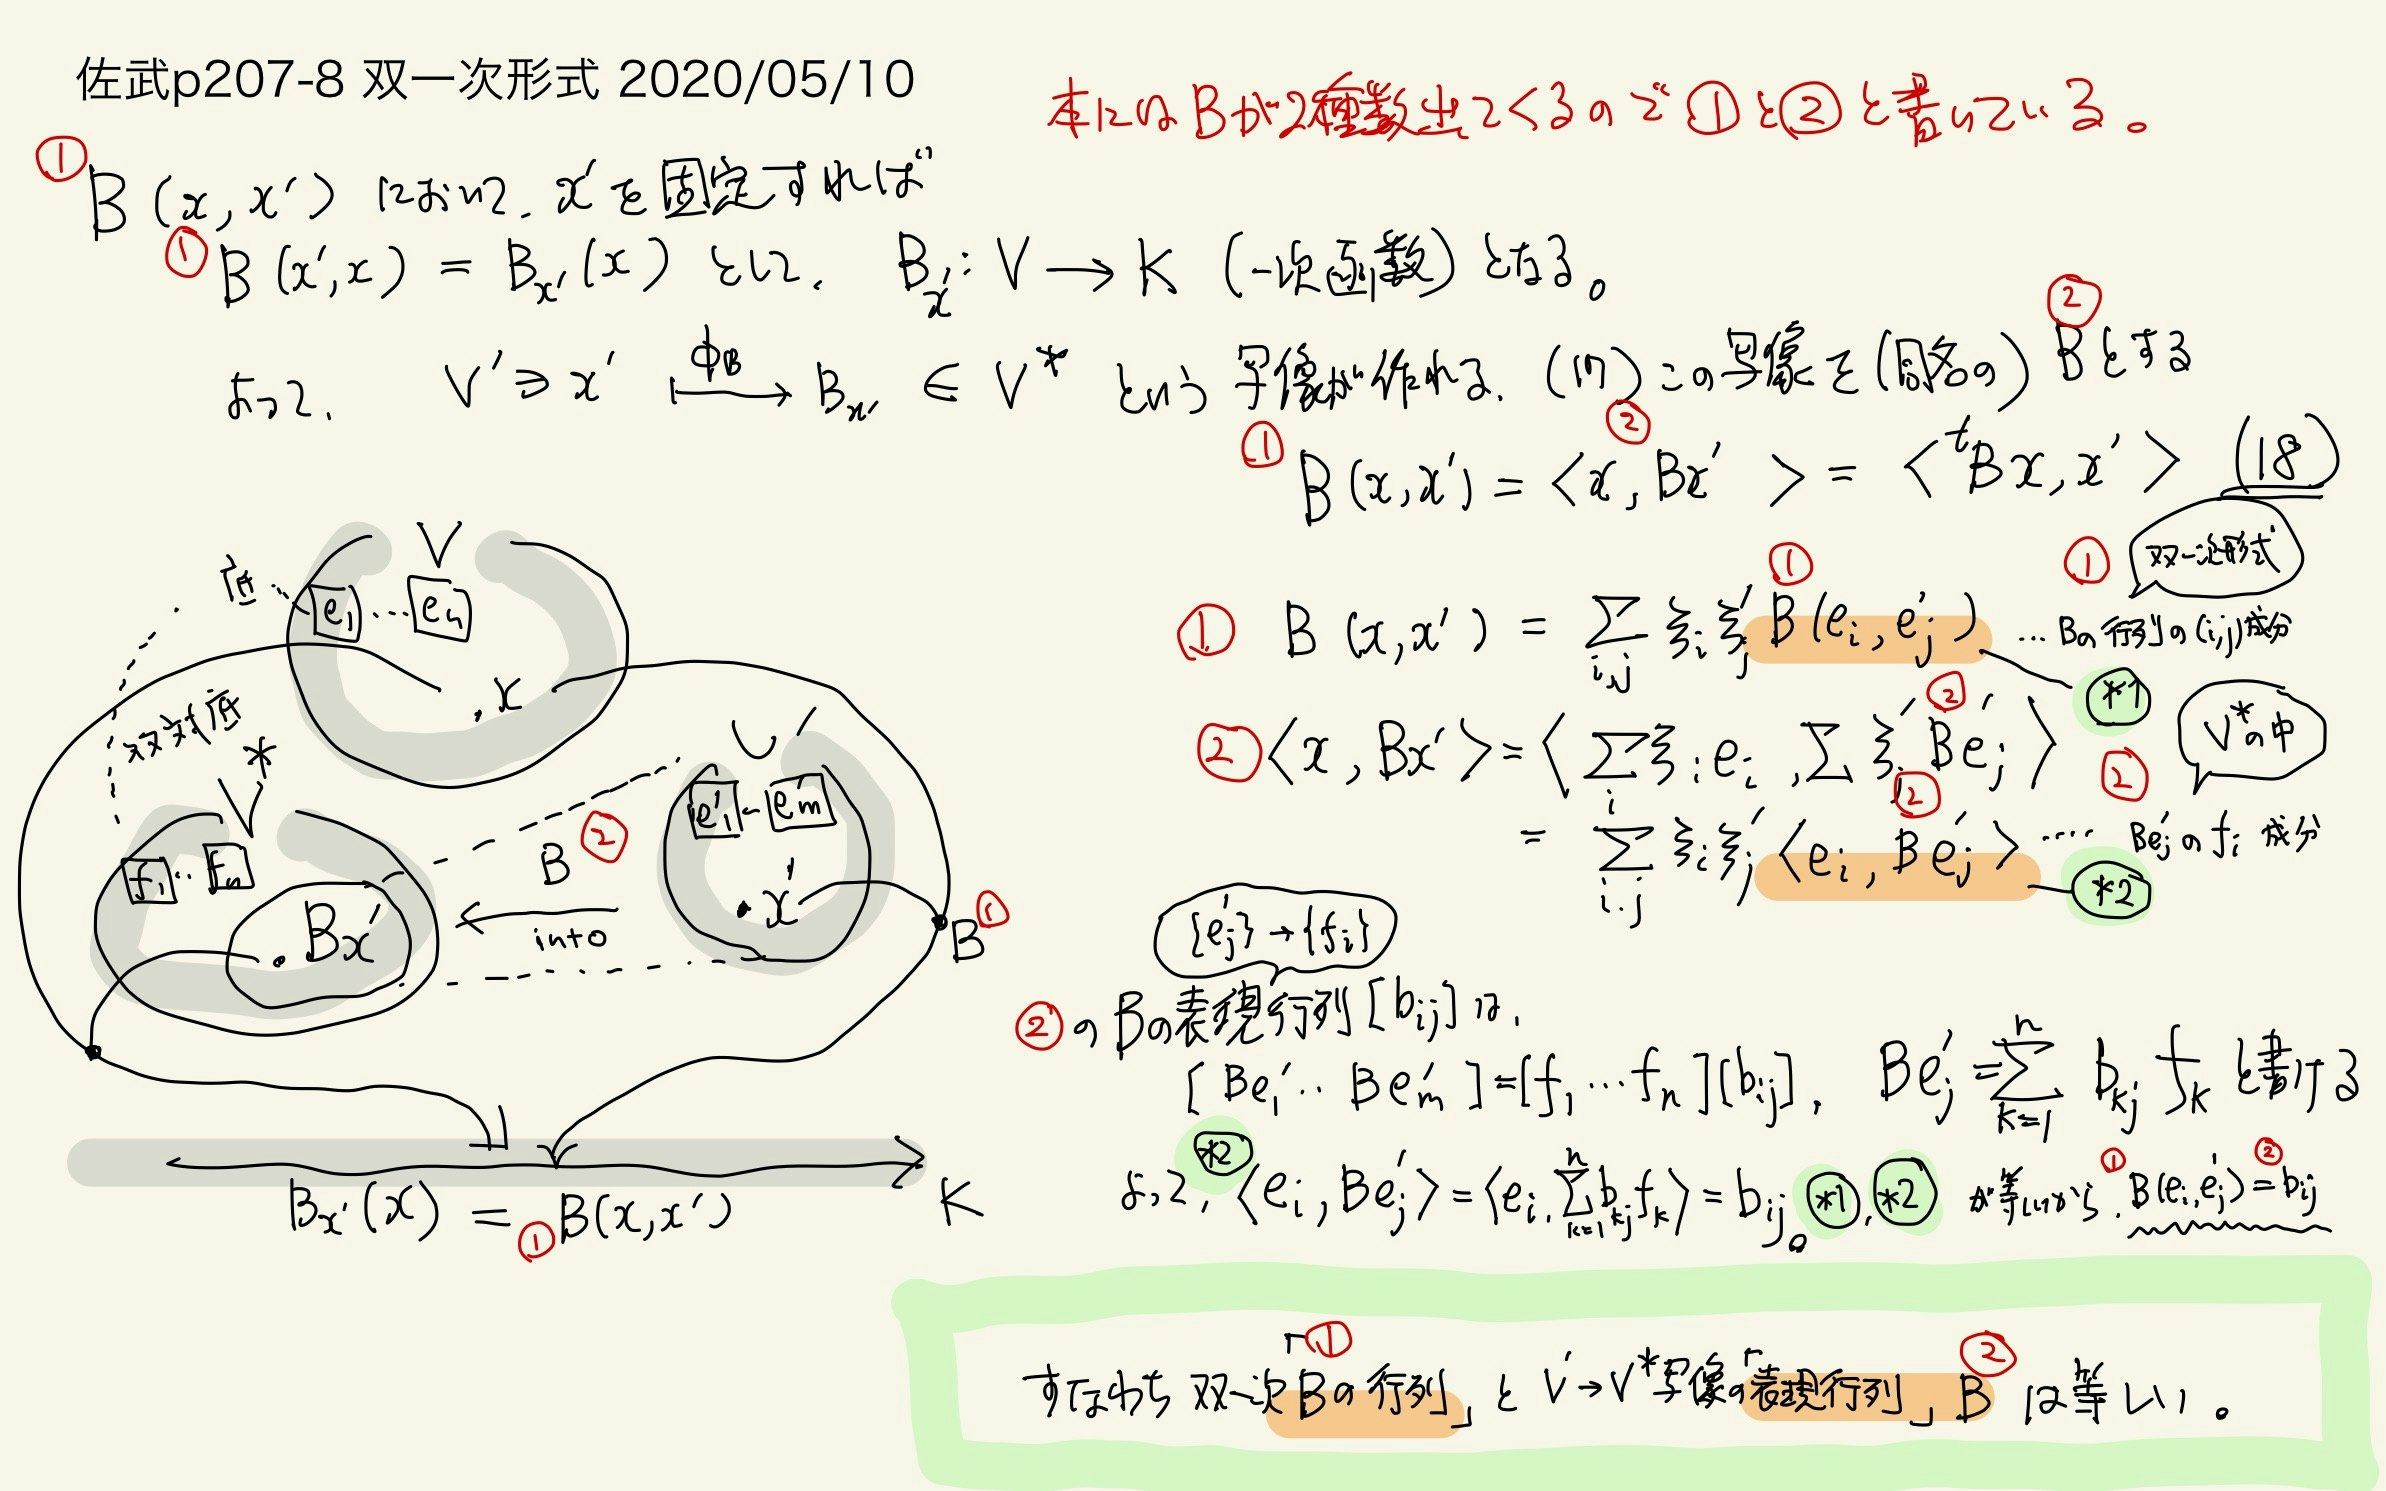 佐武p207-8 双一次形式 2020/05/10
本にはBが2種類出てくるので①と②と書いている。
① B(x, x') において、x'を固定すれば
① B(x', x) = B_{x'}(x) として、 B_{x'}: V → K (一次函数) となる。
よって、 V' ∋ x' ⟼^{φ_B} B_{x'} ∈ V* という写像が作れる。(17) この写像を(同名の) ②Bとする
① B(x, x') = <x, ②Bx'> = <ᵗBx, x'> (18)
① B(x, x') = Σ_{i,j} ξ_i ξ'_j ①B(e_i, e'_j) … Bの行列の(i,j)成分
① 双一次形式
*1
② <x, Bx'> = <Σ_i ξ_i e_i, Σ_j ξ'_j ②Be'_j>
V*の中
②
= Σ_{i,j} ξ_i ξ'_j <e_i, ②Be'_j> …… Be'_jのf_i成分
*2
{e'_j} → {f_i}
②のBの表現行列[b_{ij}]は、
[Be'_1 ‥ Be'_m] = [f_1 … f_n][b_{ij}], Be'_j = Σ_{k=1}^{n} b_{kj} f_k と書ける
よって, *2 <e_i, Be'_j> = <e_i, Σ_{k=1}^{n} b_{kj} f_k> = b_{ij}。 *1, *2 が等しいから、 ①B(e_i, e'_j) = ②b_{ij}
すなわち 双一次「①Bの行列」と V'→V*写像の「表現行列」②B は等しい。
V
底 … e_1 … e_n
. x
双対底
V*
f_1 ‥ f_n
. Bx'
B ②
into
V'
e'_1 - e'_m
. x'
B ①
B_{x'}(x) = ①B(x, x')
K